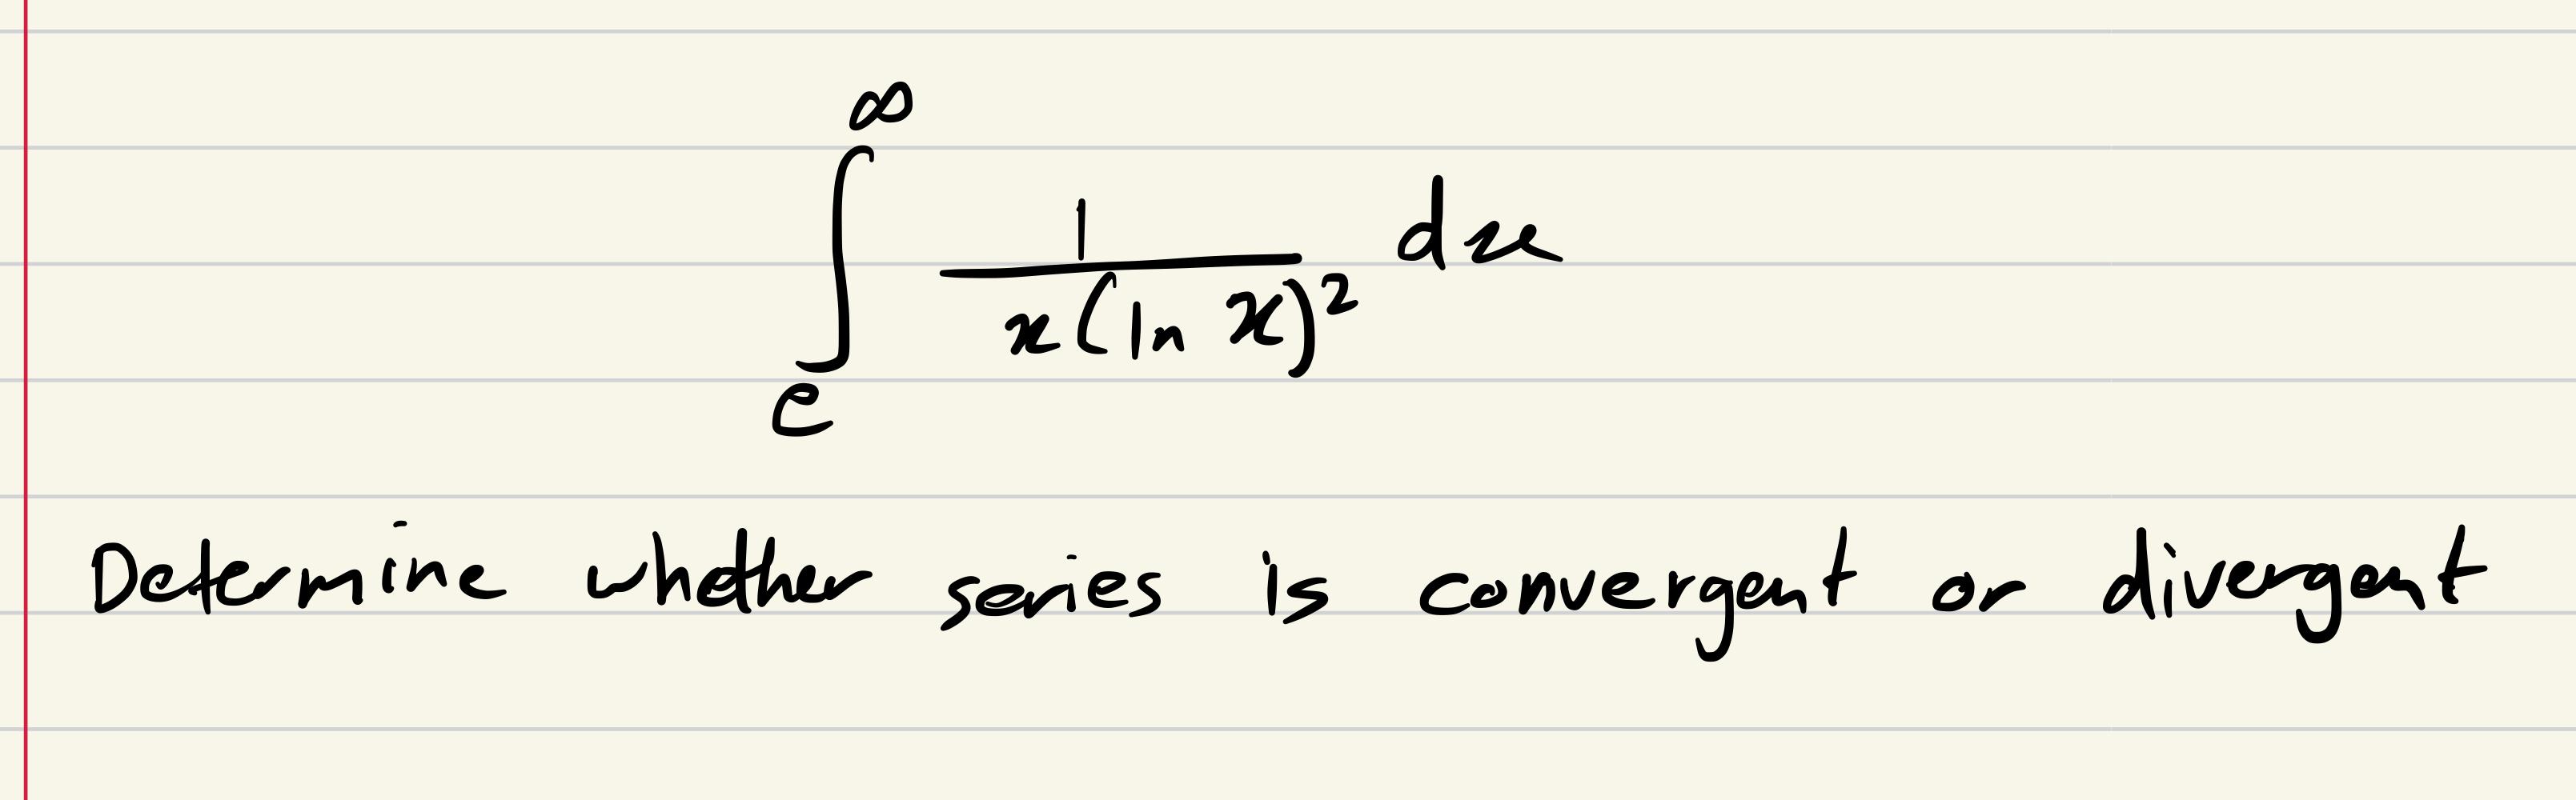 ∫_e^∞ 1/(x(ln x)^2) dx
Determine whether series is convergent or divergent